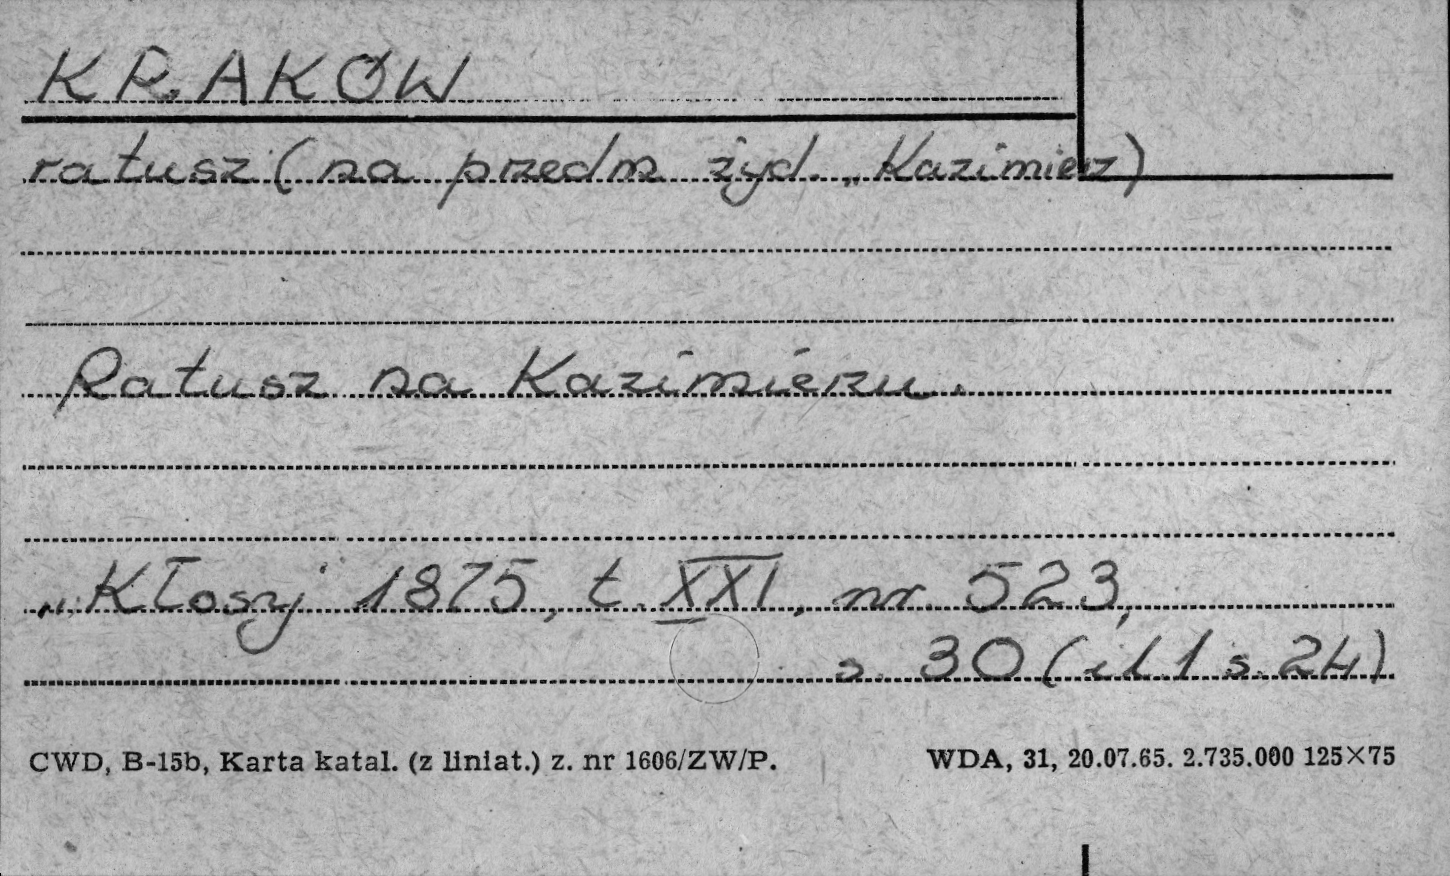 KRAKÓW
ratusz (na przedm żyd. „Kazimierz)
Ratusz na Kazimierzu.
„Kłosy" 1875, t. XXI, nr. 523,
s. 30 (il. 1 s. 24)
CWD, B-15b, Karta katal. (z liniat.) z. nr 1606/ZW/P. WDA, 31, 20.07.65. 2.735.000 125×75